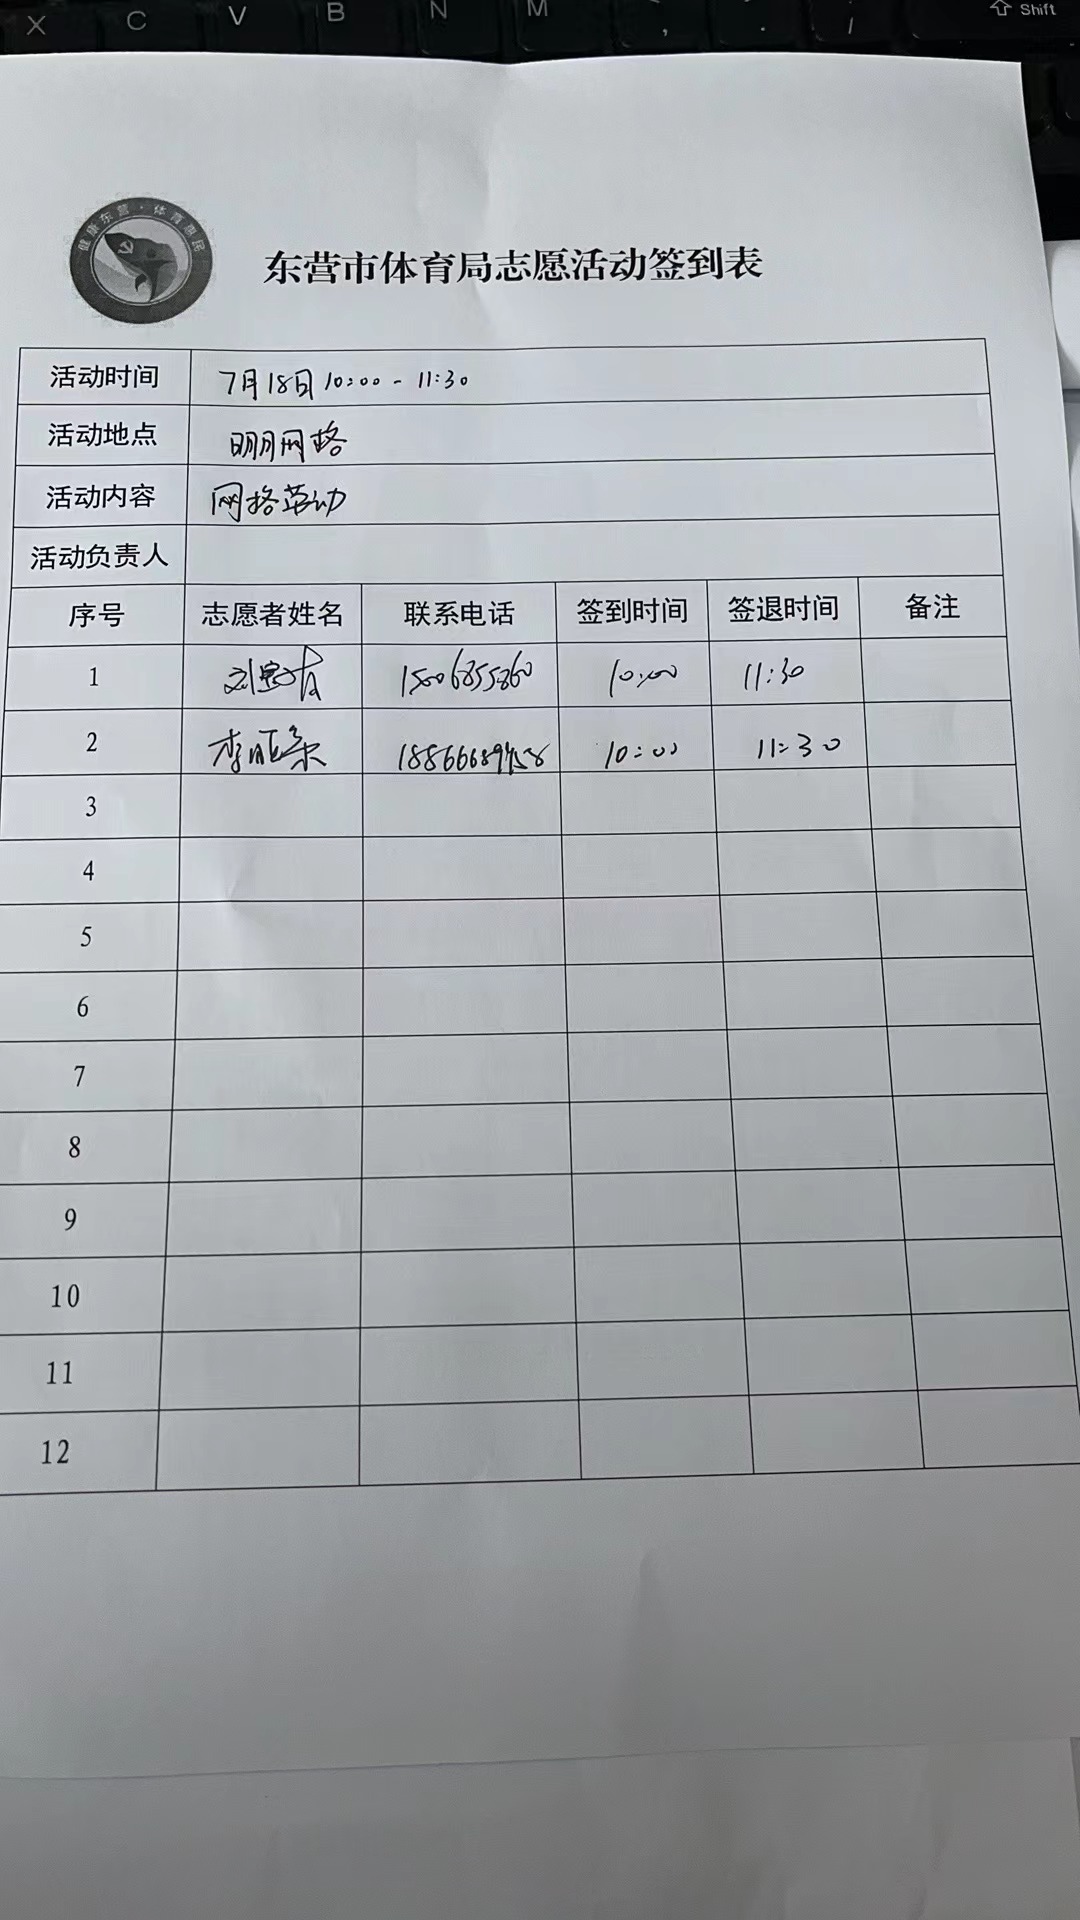 X C V B N M , . / ⇧ Shift
健康东营·体育惠民
东营市体育局志愿活动签到表
活动时间 7月18日 10:00 - 11:30
活动地点 明月网格
活动内容 网格劳动
活动负责人
序号 志愿者姓名 联系电话 签到时间 签退时间 备注
1 15006855860 10:00 11:30
2 10:00 11:30
3
4
5
6
7
8
9
10
11
12